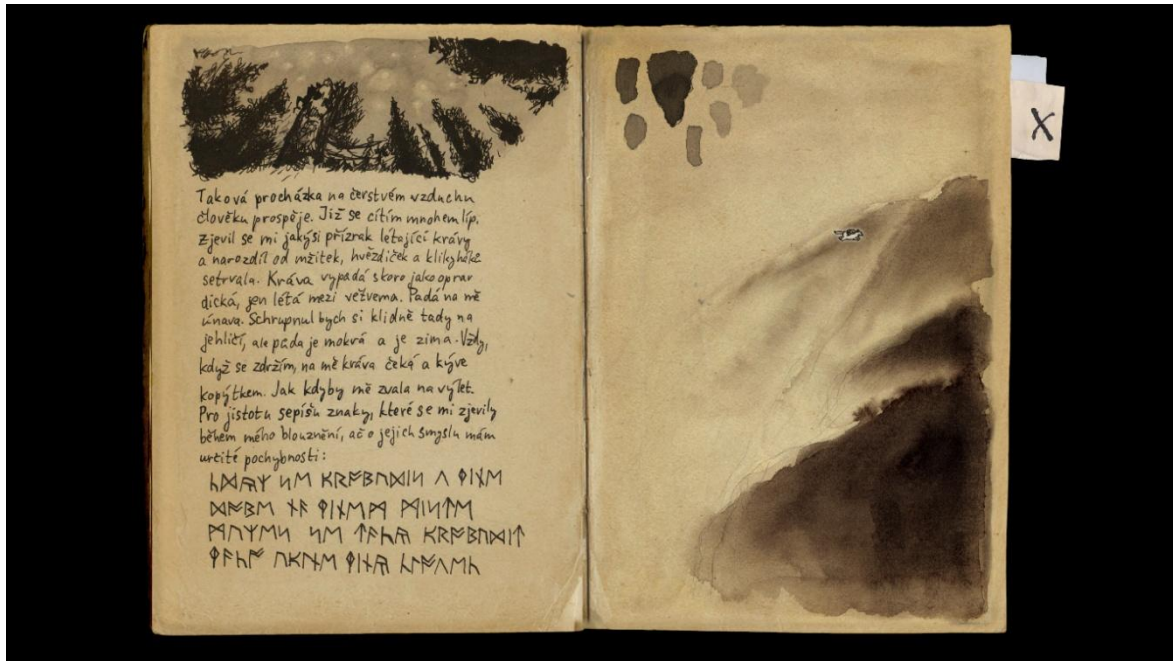 Taková procházka na čerstvém vzduchu
člověku prospěje. Již se cítím mnohem líp.
Zjevil se mi jakýsi přízrak létající krávy
a narozdíl od mžitek, hvězdiček a klikyháků
setrvala. Kráva vypadá skoro jako oprav
dická, jen létá mezi větvema. Padá na mě
únava. Schrupnul bych si klidně tady na
jehličí, ale půda je mokrá a je zima. Vždy,
když se zdržím, na mě kráva čeká a kýve
kopýtkem. Jak kdyby mě zvala na výlet.
Pro jistotu sepíšu znaky, které se mi zjevily
během mého blouznění, ač o jejich smyslu mám
určité pochybnosti:
X